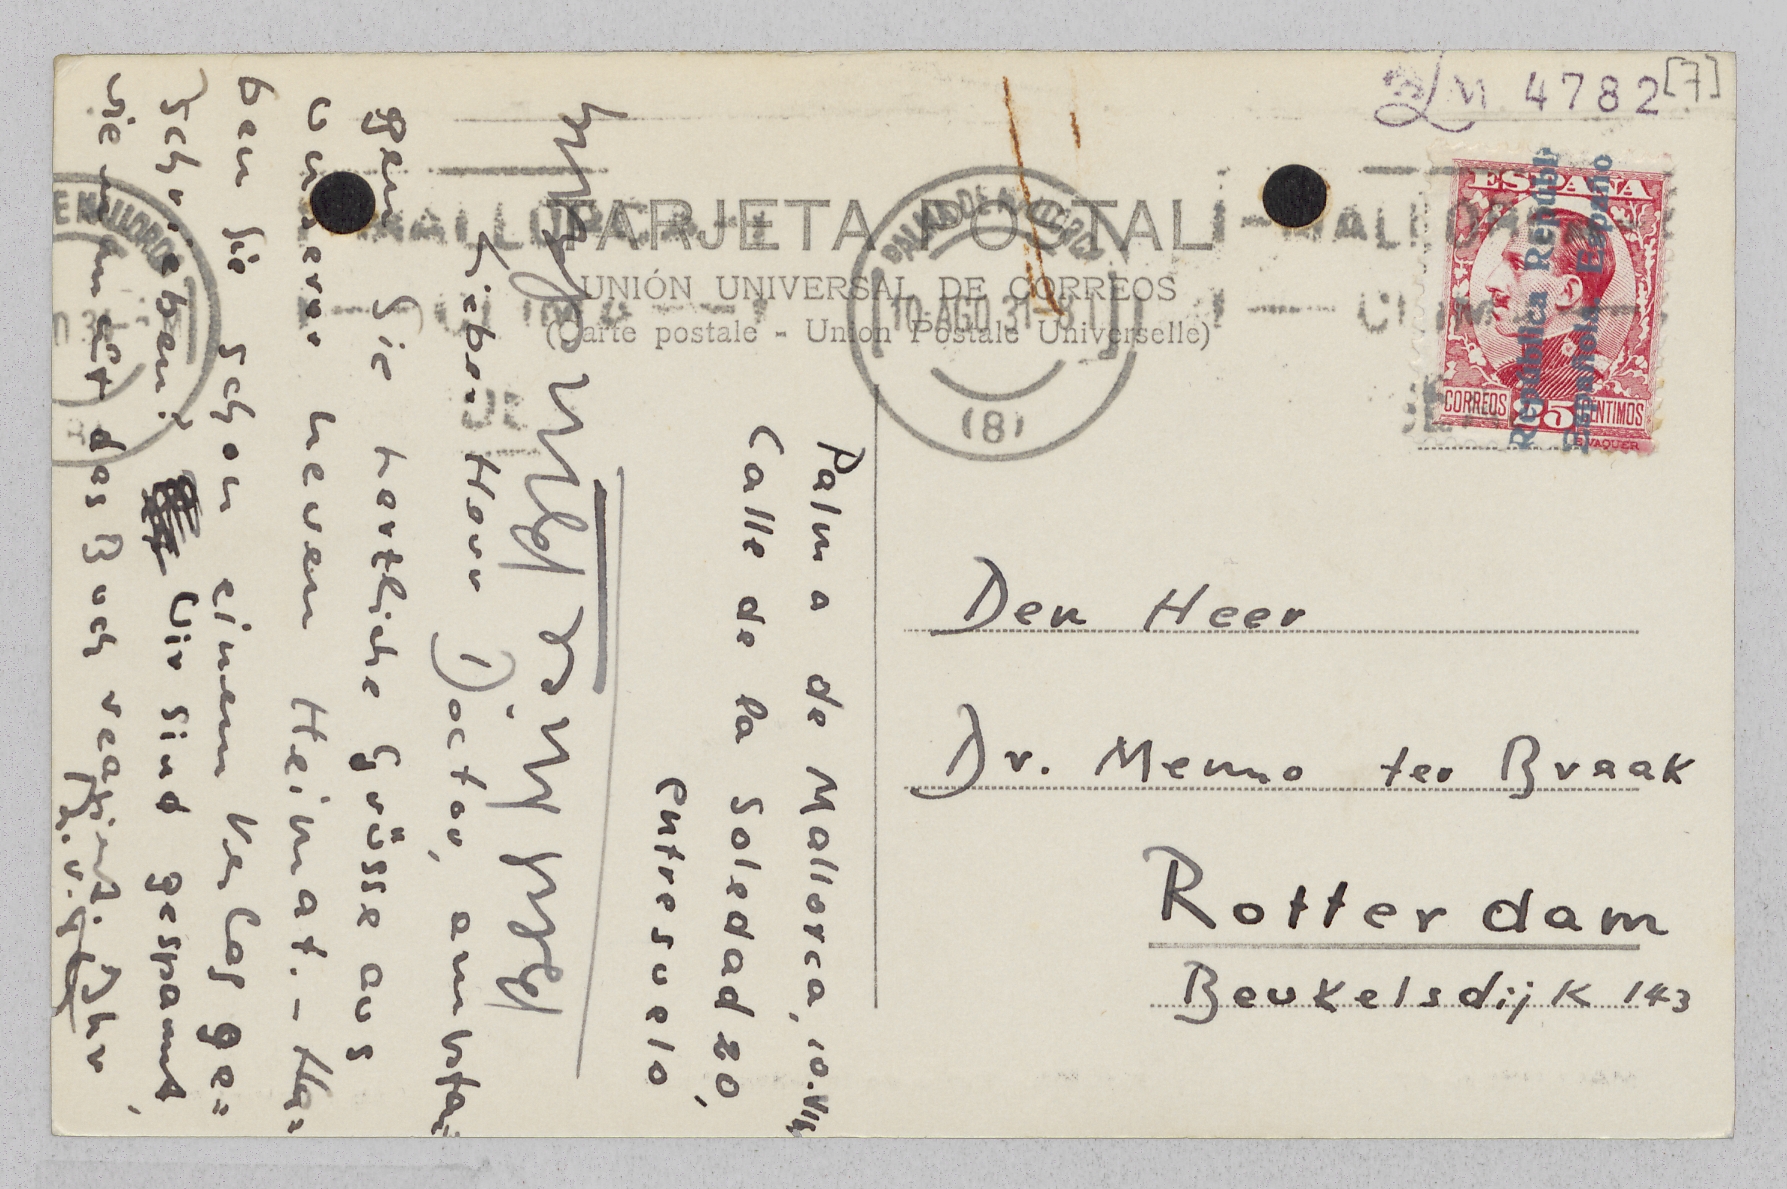 LM 4782 [7]
TARJETA POSTAL
UNIÓN UNIVERSAL DE CORREOS
(Carte postale - Union Postale Universelle)
PALMA DE MALLORCA
10 AGO 31
(8)
ESPAÑA
CORREOS 25 CENTIMOS
República Española
Den Heer
Dr. Menno ter Braak
Rotterdam
Beukelsdijk 143
Palma de Mallorca, 10.VIII
Calle de la Soledad 20,
entresuelo
Lieber Herr Doctor,
gen Sie herzliche Grüsse aus
unserer neuen Heimat. – Ha=
ben Sie schon einem Verlag ge=
schrieben? Wir sind gespannt,
wie man auf das Buch reagiert. Ihr